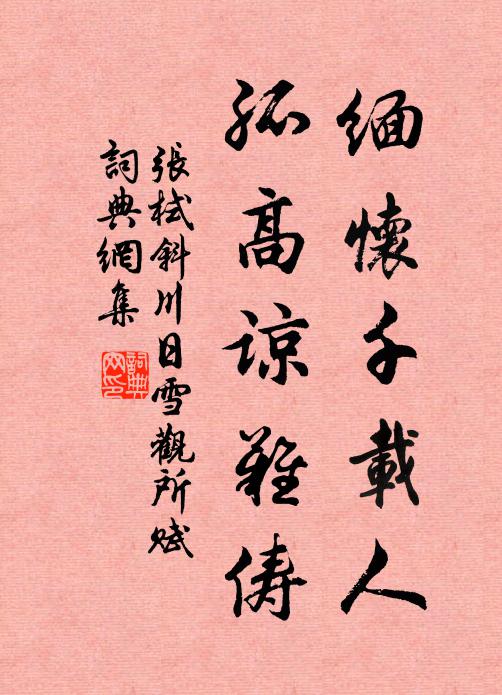 緬懷千載人
孤高諒難儔
張栻斜川日雪觀所賦
詞典網集
詞典
网印